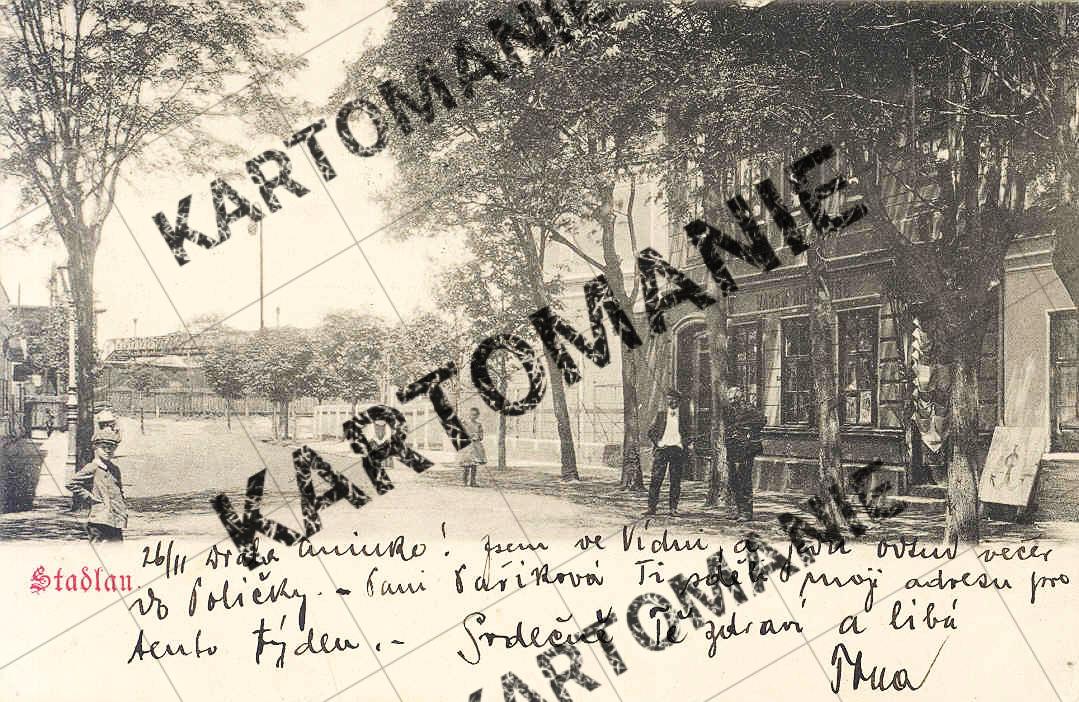 KARTOMANIE
KARTOMANIE
KARTOMANIE
KARTOMANIE
Stadlau.
26/11 Drahá Aninko! jsem ve Vídni, a jedu odtud večer
do Poličky. - Paní Paříková Ti sdělí moji adresu pro
tento týden. - Srdečně Tě zdraví a líbá